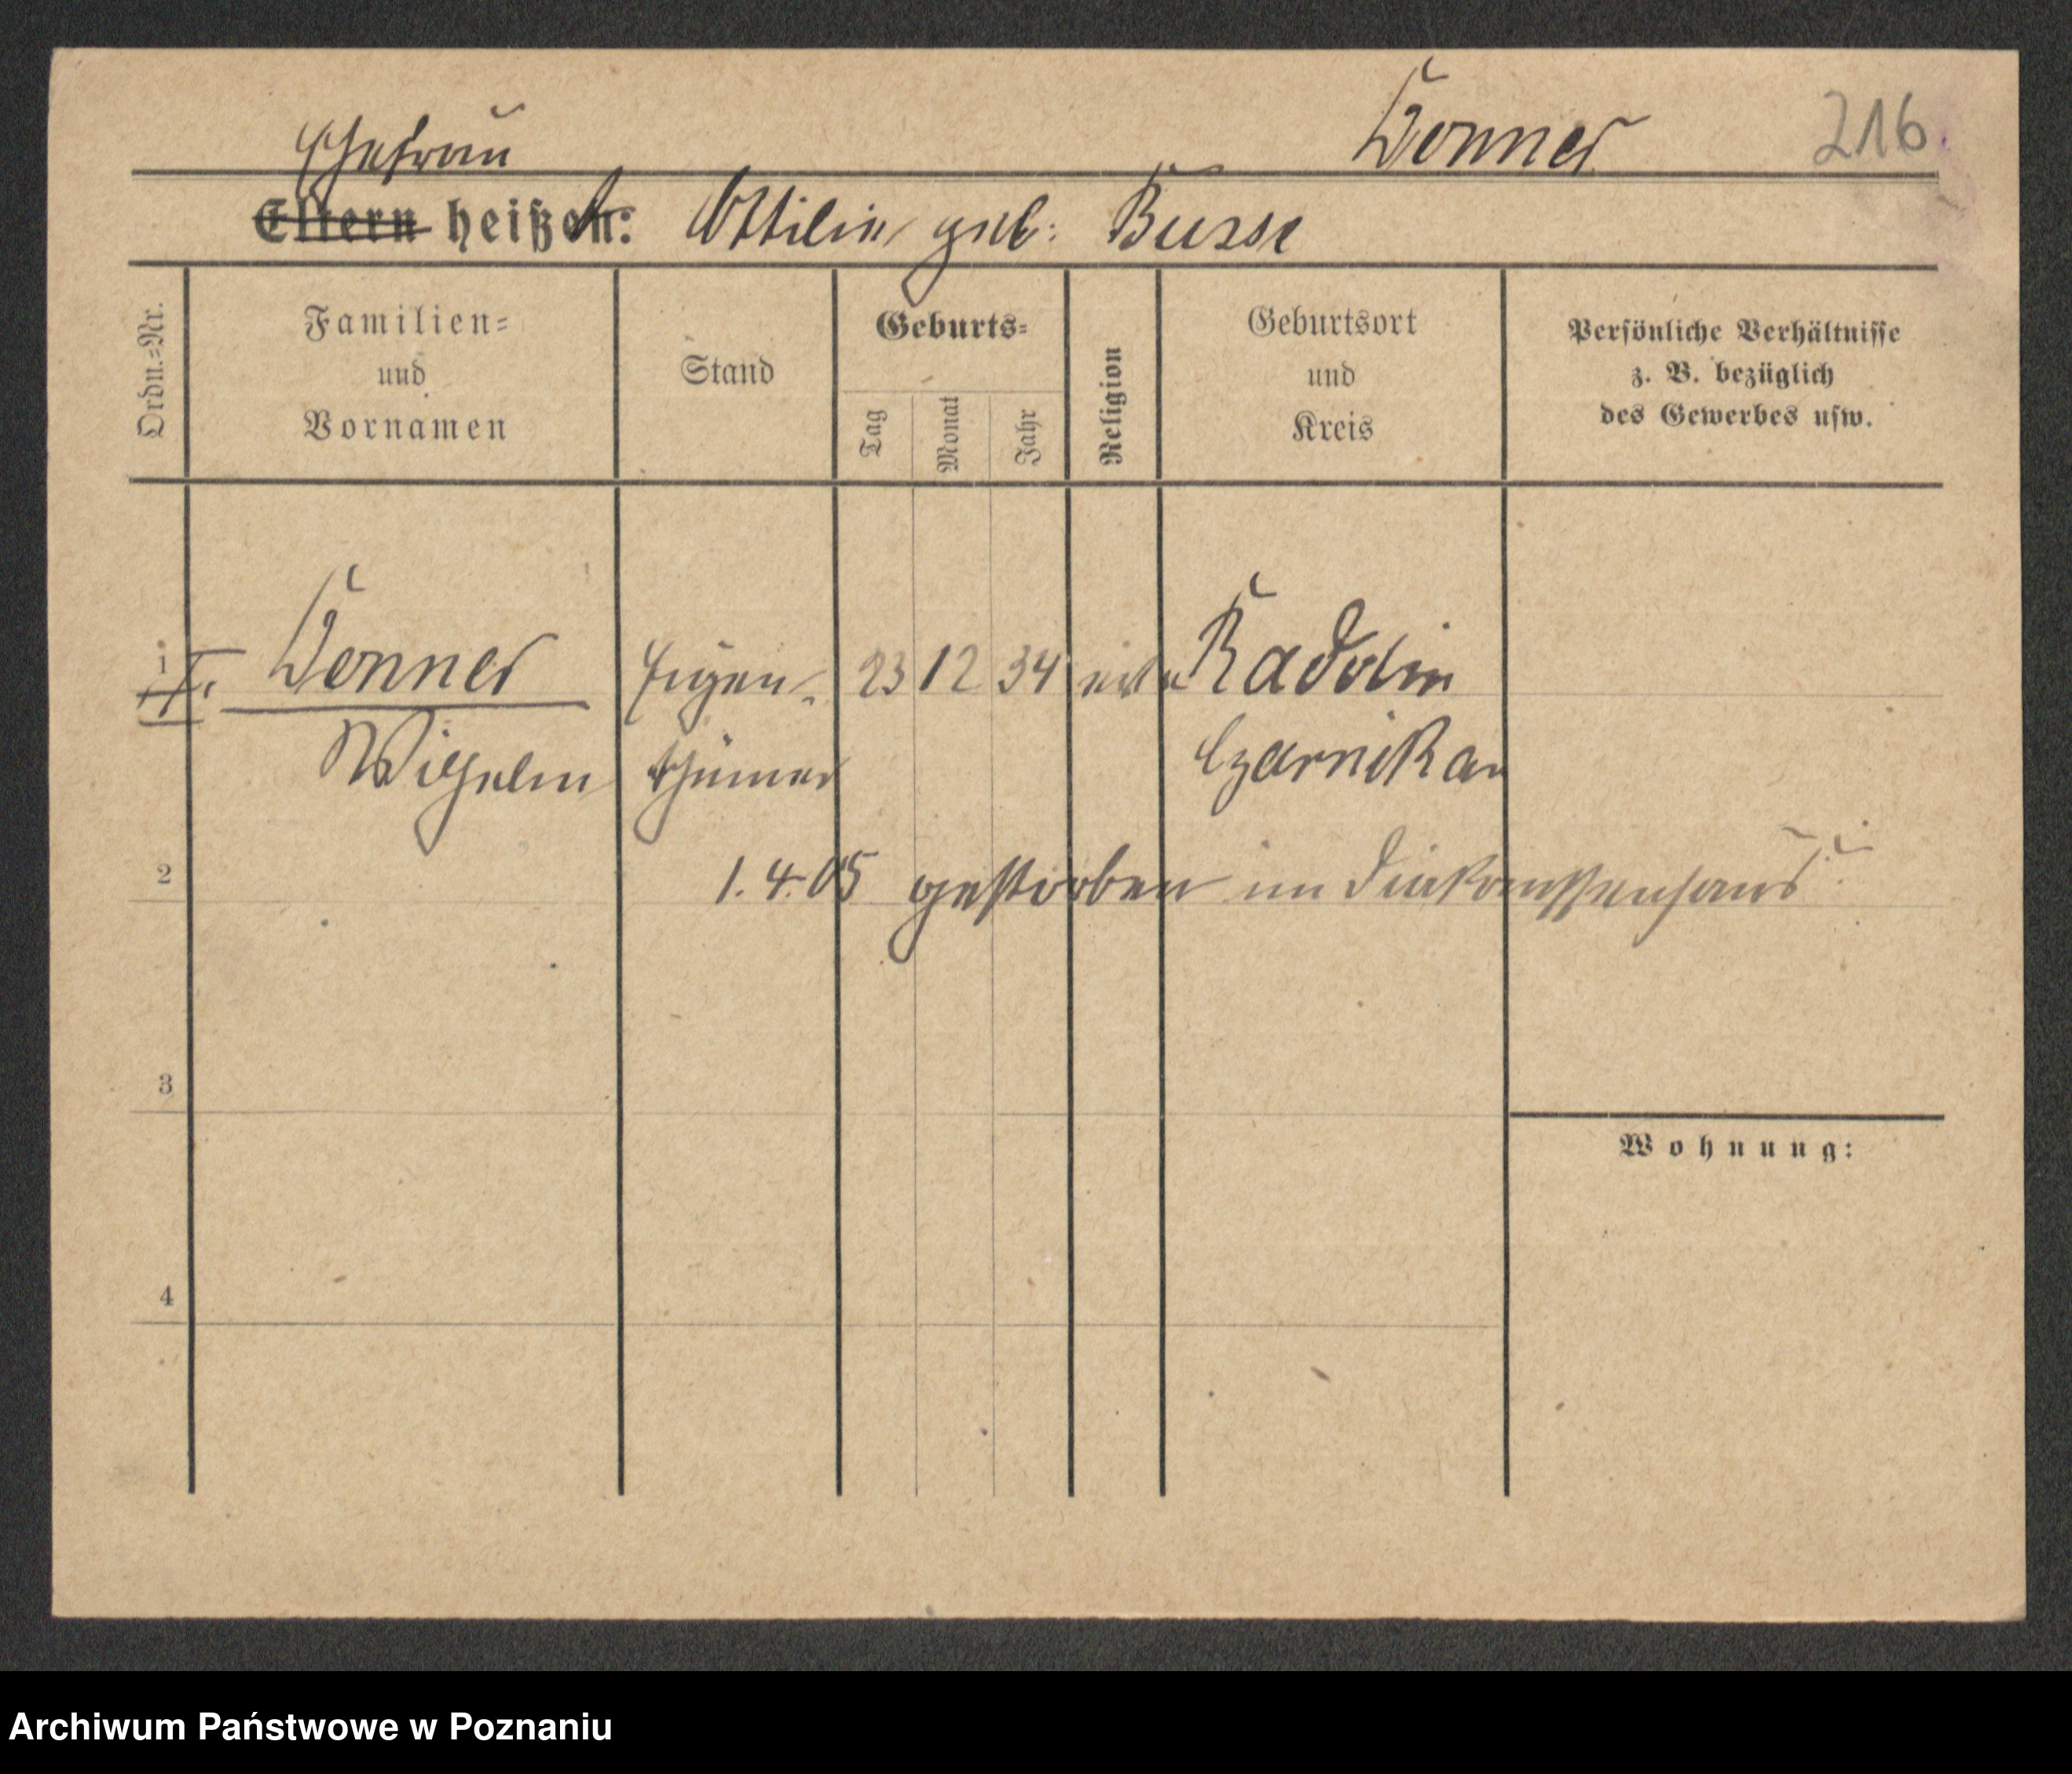 Donner 216.
Ehefrau
Eltern heißen: Ottilie geb: Busse
Ordn.=Nr.
Familien=
und
Vornamen
Stand
Geburts=
Tag
Monat
Jahr
Religion
Geburtsort
und
Kreis
Persönliche Verhältnisse
z. B. bezüglich
des Gewerbes usw.
1 Donner Eigen- 23 12 34 Radolin
Wilhelm thümer Czarnikau
2 1. 4. 05 gestorben im Diakonissenhaus
3
Wohnung:
4
Archiwum Państwowe w Poznaniu